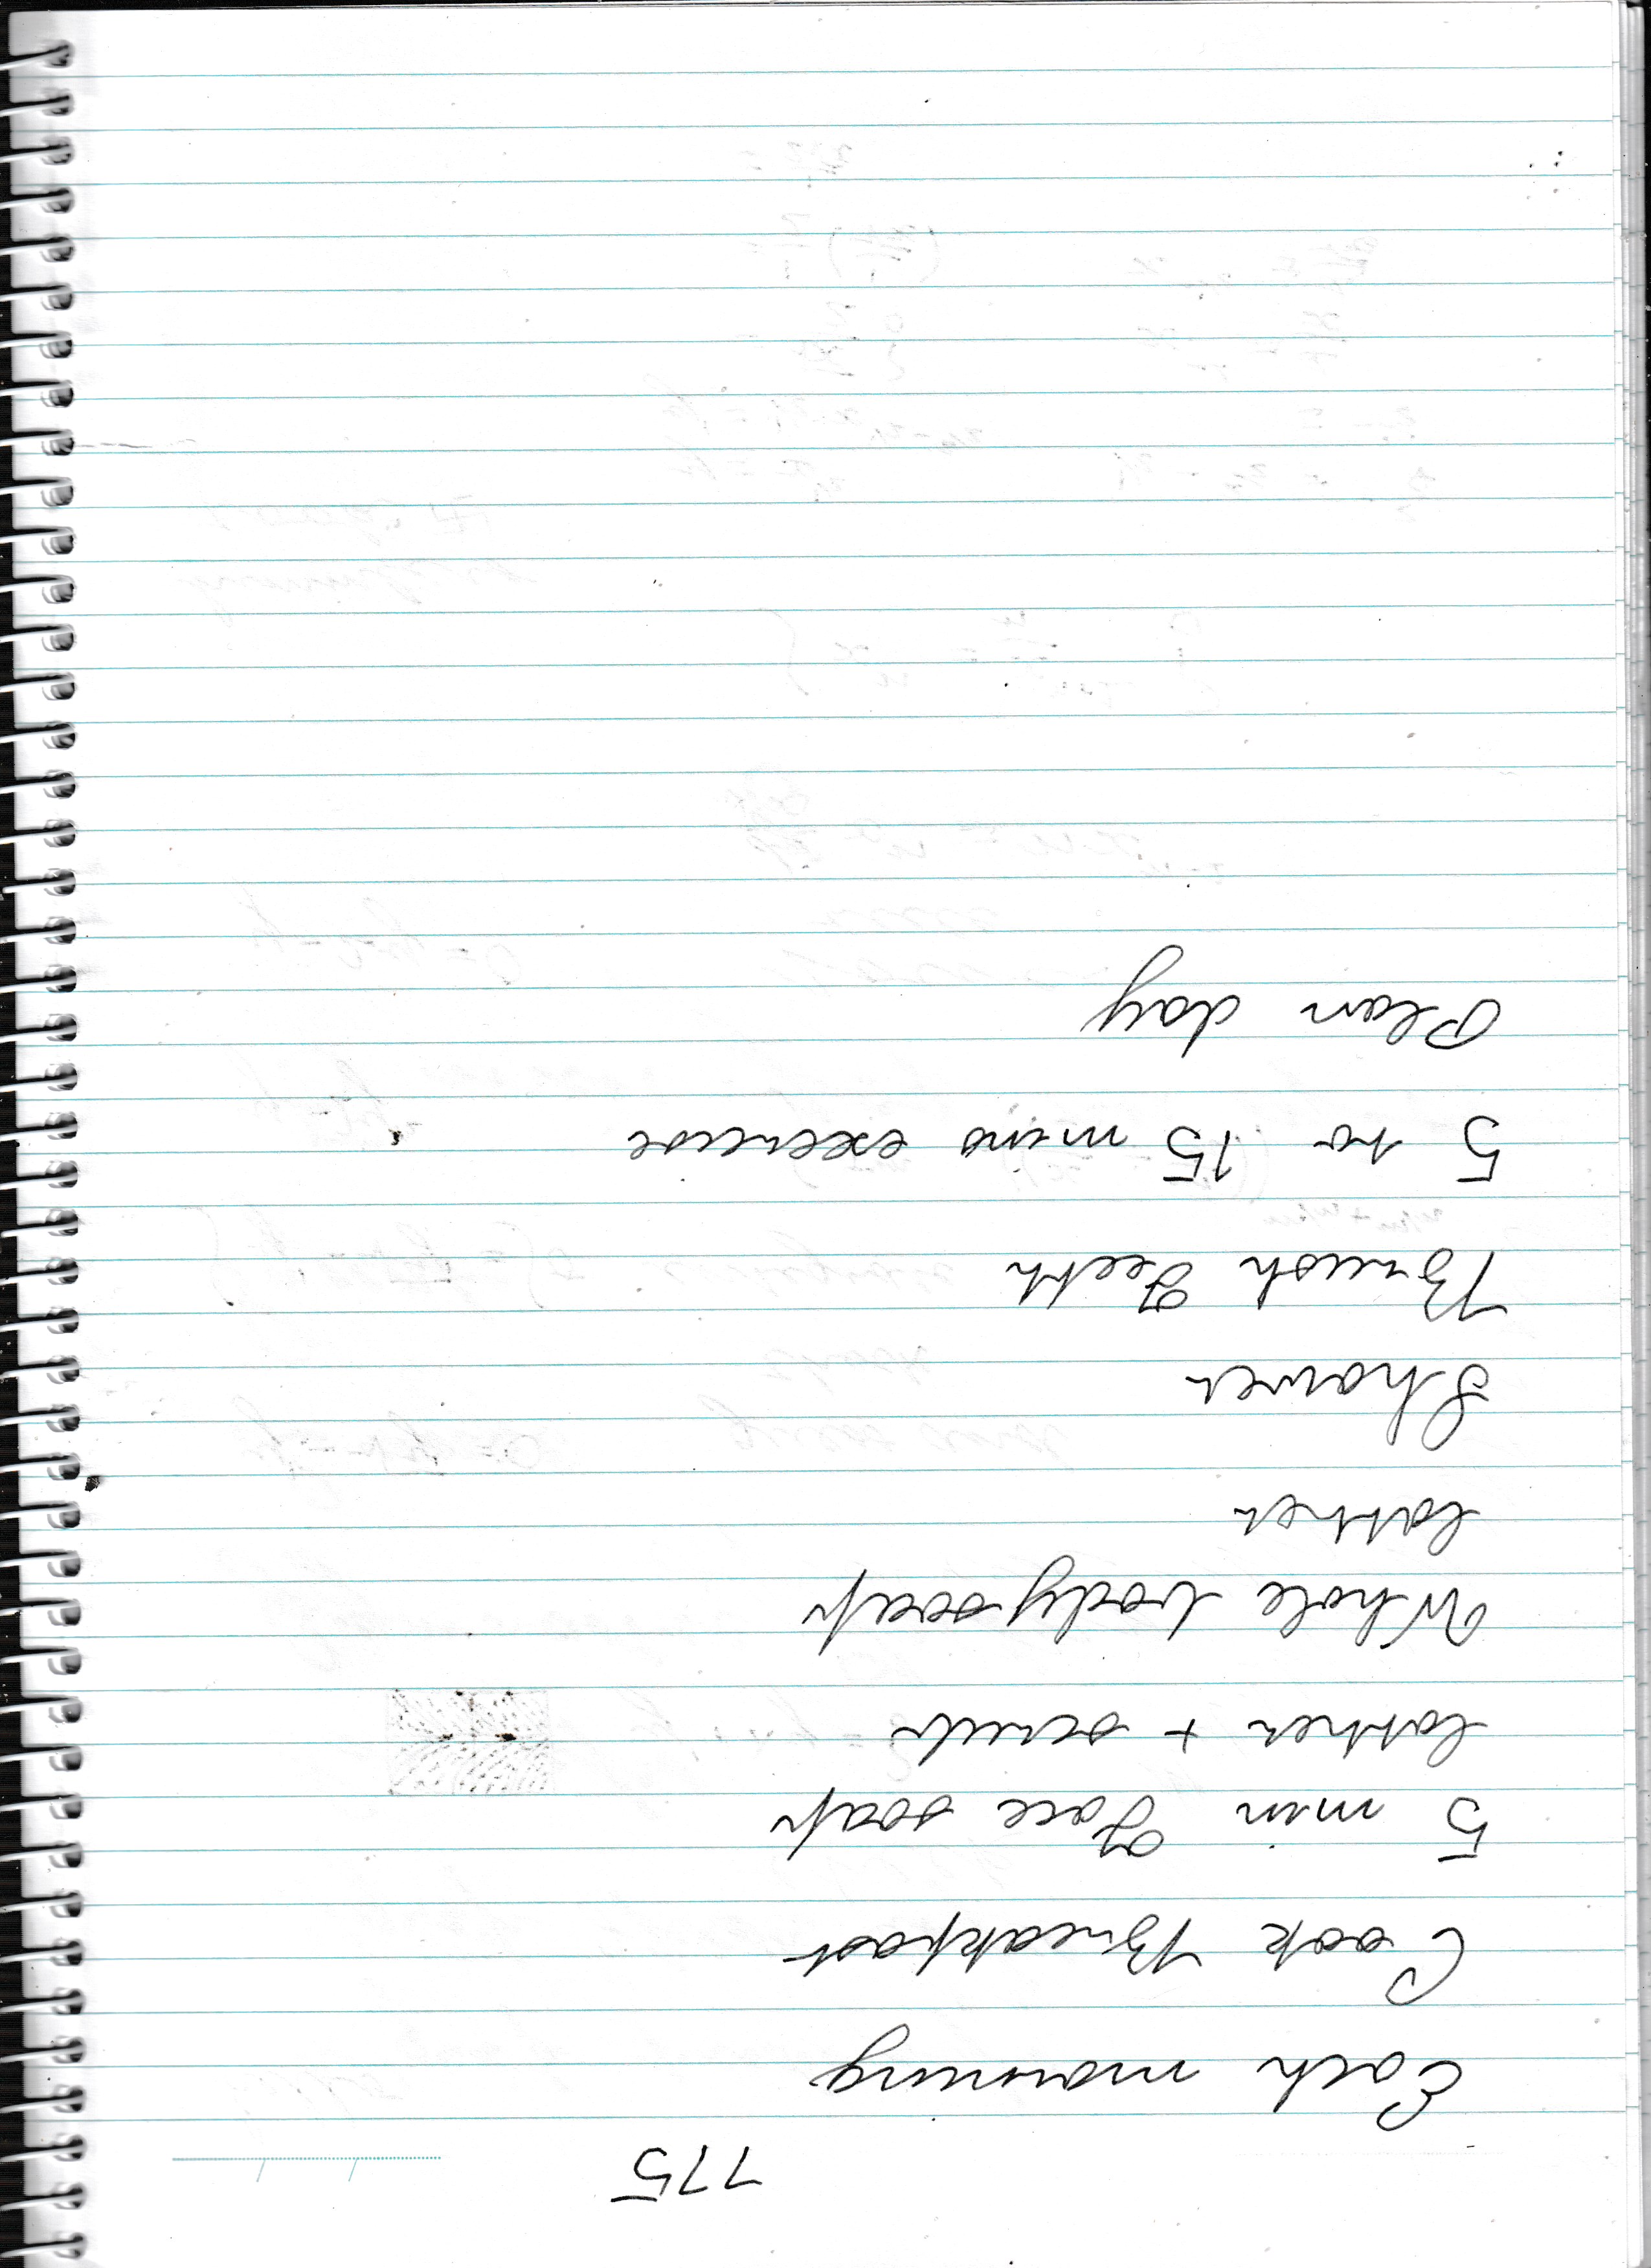 115
Each morning
Cook Breakfast
5 min Face soap
lather + scrub
Whole body soap
lather
Shower
Brush Teeth
5 to 15 mins exercise
Plan day